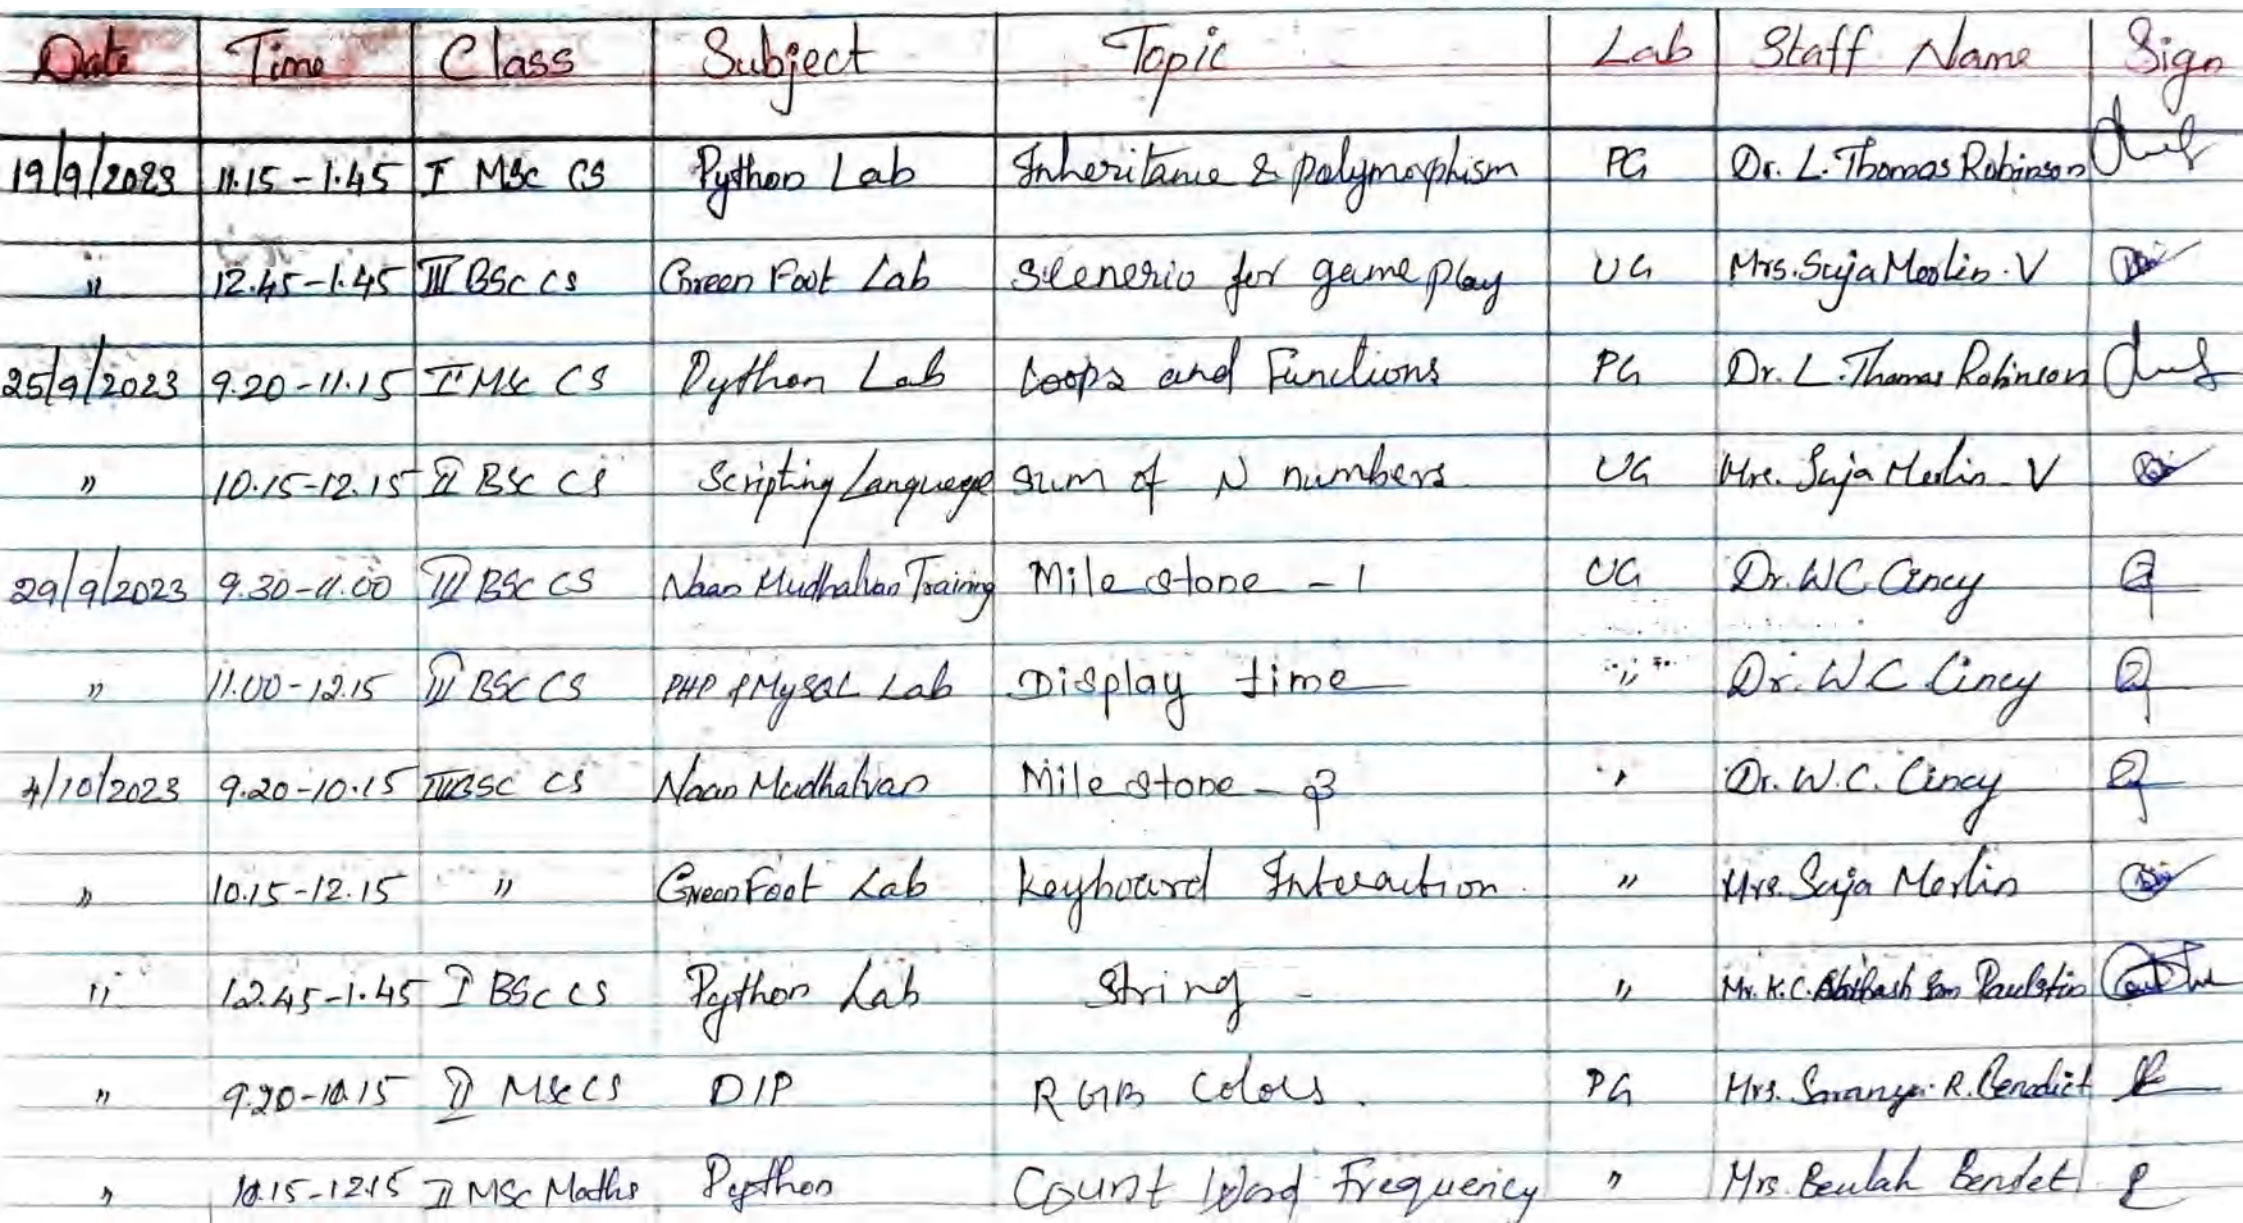 Date Time Class Subject Topic Lab Staff Name Sign
19/9/2023 11.15-1.45 I MSc CS Python Lab Inheritance & polymorphism PG Dr. L. Thomas Robinson
" 12.45-1.45 III BSc CS Green Foot Lab Scenerio for game play UG Mrs. Suja Merlin. V
25/9/2023 9.20-11.15 I MSc CS Python Lab Loops and Functions PG Dr. L. Thomas Robinson
" 10.15-12.15 II BSc CS Scripting Language Sum of N numbers UG Mrs. Suja Merlin V
29/9/2023 9.30-11.00 III BSc CS Naan Mudhalvan Training Mile stone - 1 UG Dr. W C Cincy
" 11.00-12.15 III BSc CS PHP & MySQL Lab Display time " Dr. W C Cincy
4/10/2023 9.20-10.15 III BSC CS Naan Mudhalvan Mile stone - 3 " Dr. W.C. Cincy
" 10.15-12.15 " Green Foot Lab Keyboard Interaction " Mrs. Suja Merlin
" 12.45-1.45 I BSc CS Python Lab String - " Mr. K.C.
" 9.20-10.15 II MSc CS DIP RGB Colors. PG Mrs. Saranya R. Benedict
" 10.15-12.15 II MSc Maths Python Count Word Frequency " Mrs. Beulah Bendet